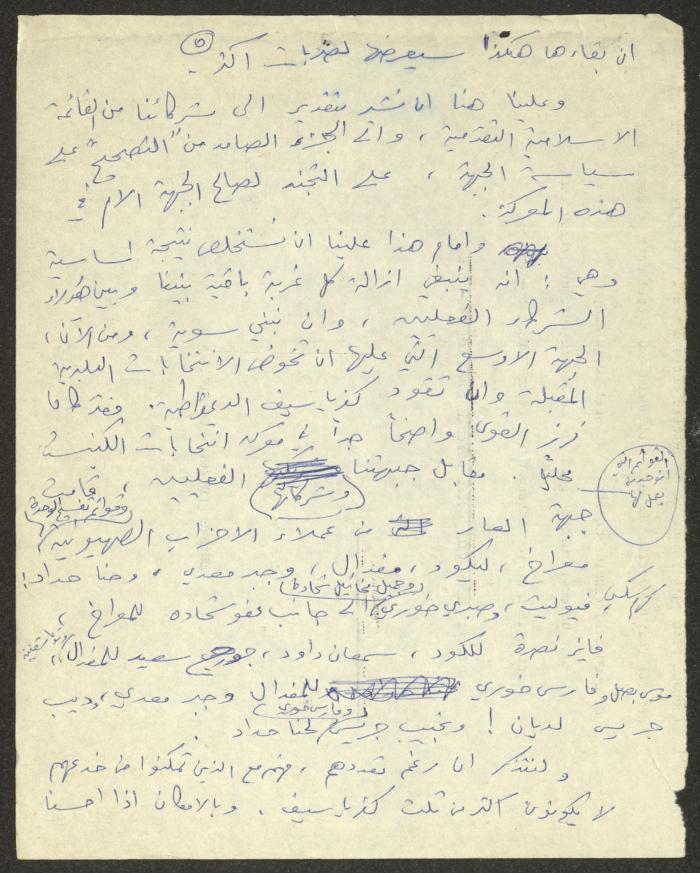 ٥
ان بقاءها هكذا سيعرضها لضربات اكثر.
وعلينا هنا ان نشير بتقدير الى شركائنا من القائمة
الاسلامية التقدمية، والى الجزء الصامد من "التصحيح" على
سياسة الجبهة، على التجند لصالح الجبهة الام في
هذه المعركة.
وامام هذا علينا ان نستخلص نتيجة اساسية
وهي: انه ينبغي ازالة كل غربة باقية بيننا وبين هؤلاء
الشركاء الفعليين، وان نبني سوية، ومن الآن،
الجبهة الاوسع التي عليها ان تخوض الانتخابات البلدية
المقبلة وان تقود كفرياسيف الديمقراطية. فقد كان
فرز القوى واضحاً جداً في معركة انتخابات الكنيست
محلياً. مقابل جبهتنا وشركائها الفعليين، قامت
القوائم التي
توحدت
جبهة العار من عملاء الاحزاب الصهيونية
وقوائم تفسيخ الوحدة
معراخ، ليكود، مفدال، وجبر معدي، وحنا حداد!
فيوليت، وصبري خوري وجميل مخائيل شحادة الى جانب عفو شحاده للمعراخ،
فايز نصرة للكود، سمعان داود، جورج سعيد للمفدال،
موسى بصل وفارس خوري للمفدال وجبر معدي، وديب
جريس لديان! ونجيب جريس وفارس خوري لحنا حداد.
ولنتذكر ان رغم تعددهم، فهم مع الذين تمكنوا من خدعهم
لا يكونون اكثر من ثلث كفرياسيف. وبالامكان اذا احسنا